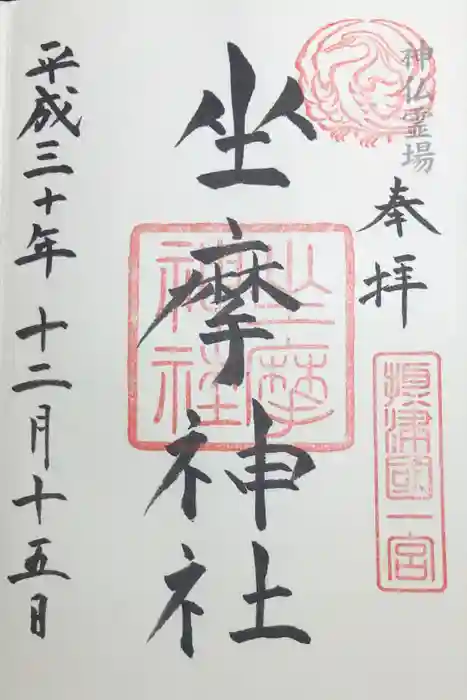 神仏霊場
奉拝
摂津國一宮
坐摩神社
坐摩
神社
平成三十年十二月十五日